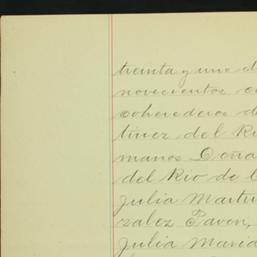 treinta y uno d
novecientos o
coherederos d
tinez del Ri
manos Doña
del Rio de l
Julia Martin
zalez Pavon,
Julia Maria